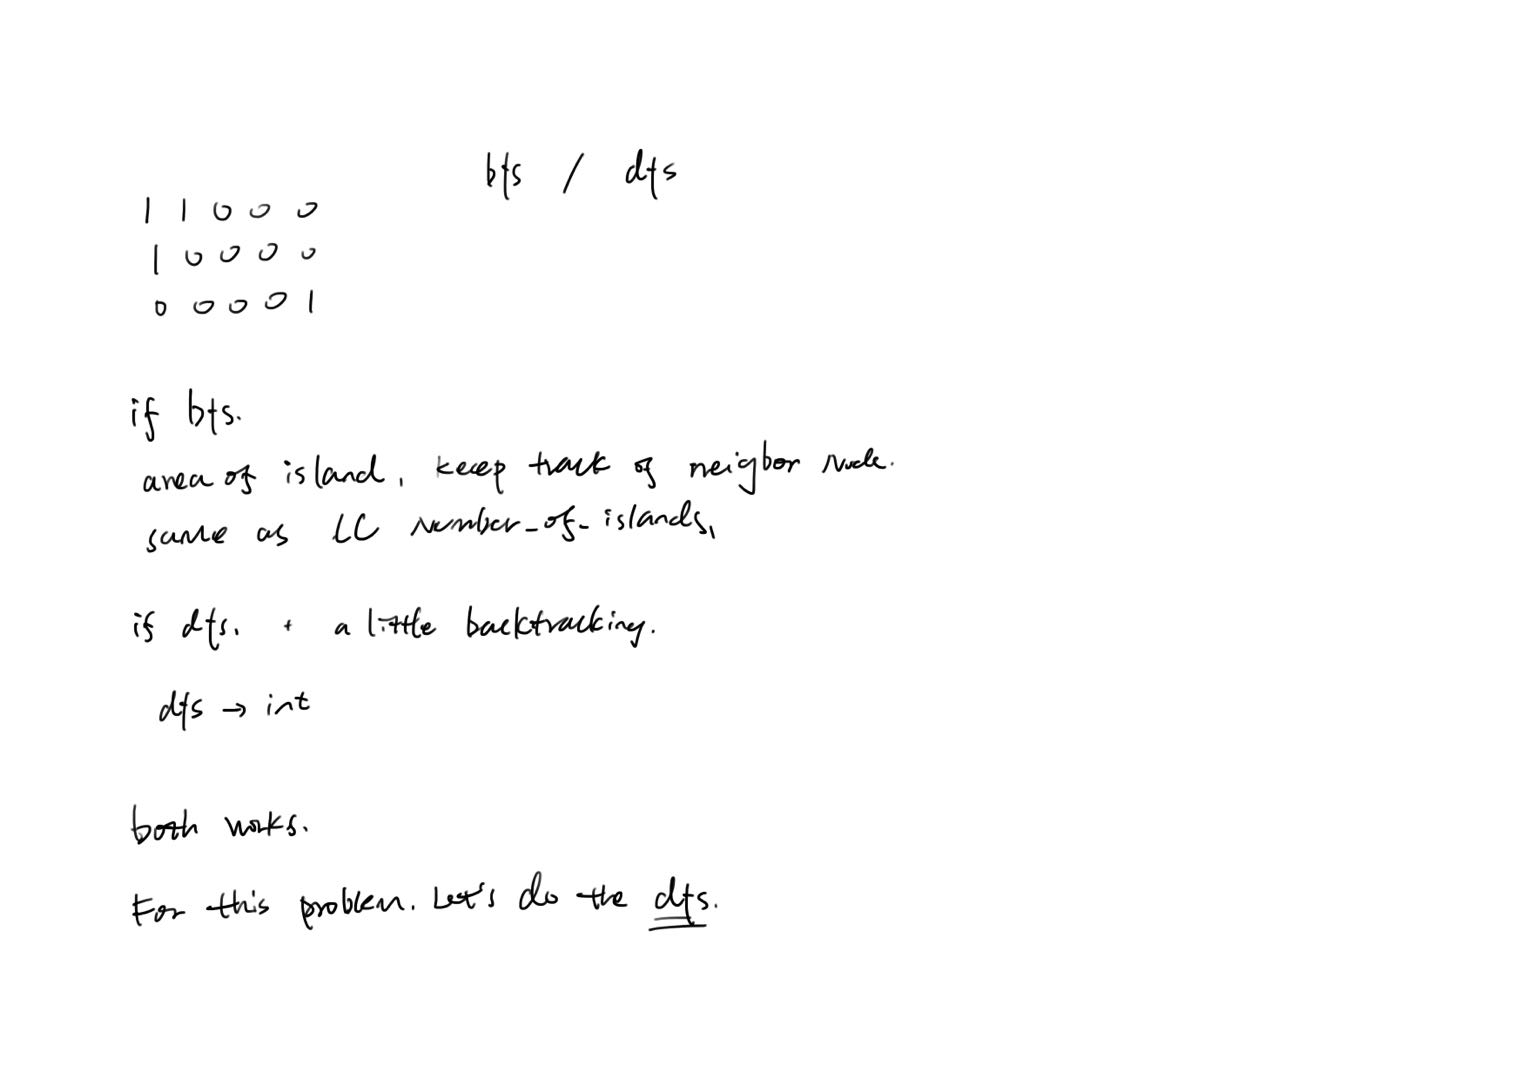 bfs / dfs
1 1 0 0 0
1 0 0 0 0
0 0 0 0 1
if bfs.
area of island, keep track of neigbor node.
same as LC number_of_islands,
if dfs. + a little backtracking.
dfs → int
both works.
For this problem. Let's do the dfs.